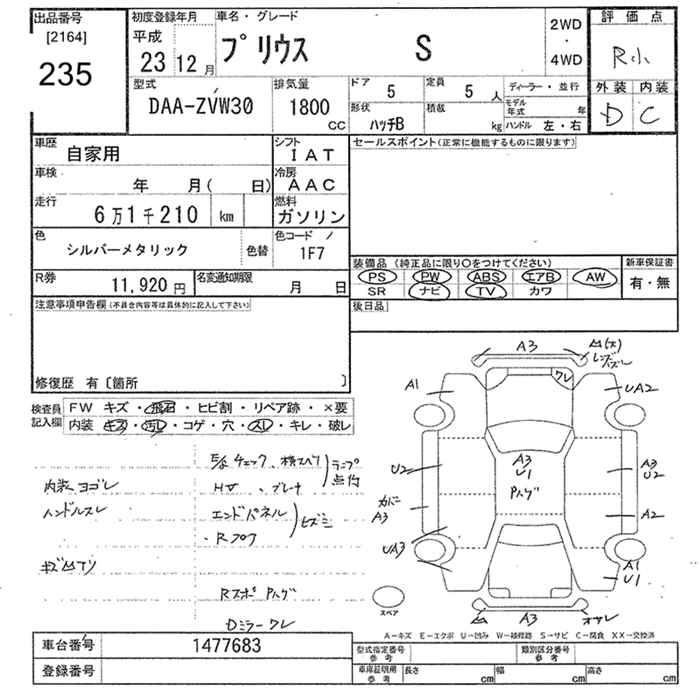 出品番号
[2164]
235
初度登録年月
平成
23 12月
車名・グレード
プリウス S
2WD
・
4WD
評価点
R小
外装 内装
D C
型式
DAA-ZVW30
排気量
1800
CC
ドア
5
定員
5 人
形状
ハッチB
積載
kg
ディーラー・並行
モデル年式 年
ハンドル 左・右
車歴
自家用
シフト
IAT
車検
年 月( 日)
冷房
AAC
走行
6万1千210 km
燃料
ガソリン
色
シルバーメタリック
色替
色コード
1F7
R券
11,920円
名変通知期限
月 日
セールスポイント(正常に機能するものに限ります)
装備品(純正品に限り○をつけてください)
PS PW ABS エアB AW
SR ナビ TV カワ
新車保証書
有・無
後日品
注意事項申告欄(不具合内容等は具体的に記入して下さい)
修復歴 有〔箇所 〕
検査員記入欄
FW キズ・飛石・ヒビ割・リペア跡・×要
内装・キズ・汚レ・コゲ・穴・スレ・キレ・破レ
内装ヨゴレ
ハンドルスレ
E/g チェック、横スベリ
ランプ点灯
H∀ 、ブレーキ
エンドパネル
Rフロア
ヒズミ
Rスポ Pハゲ
Dミラー ワレ
A3
A1
ワレ
UA2
U2
A3
U1
Pハゲ
A3
U2
カバー
A3
A2
UA3
A1
U1
A3
スペア
A-キズ E-エクボ U-凹み W-補修跡 S-サビ C-腐食 XX-交換済
車台番号
1477683
登録番号
型式指定番号
参考
類別区分番号
参考
車庫証明用
参考
長さ cm
幅 cm
高さ cm